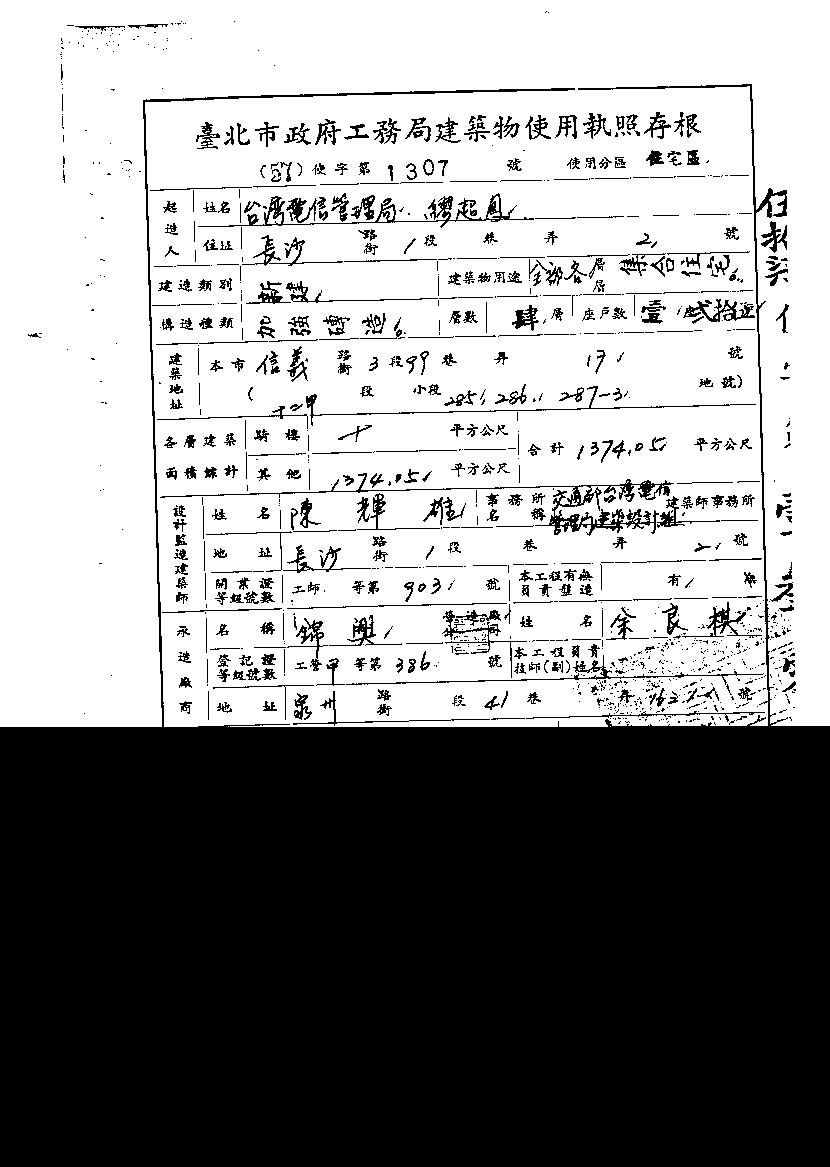 臺北市政府工務局建築物使用執照存根
(57)使字第1307號 使用分區 住宅區.
起造人 姓名 台湾電信管理局. 繆超鳳
住址 長沙 路街 1段 巷 弄 2, 號
建造類別 新建 建築物用途 全部各層層 集合住宅
構造種類 加強磚造。 層數 肆層 座戶數 壹座 弍拾
建築地址 本市 信義 路街 3段99巷 弄 17 號
( 十二甲 段 小段 285, 286, 287-3 地號)
各層建築面積綜計 騎樓 十 平方公尺 合計 1374.05 平方公尺
其他 1374.05 平方公尺
設計監造建築師 姓名 陳輝雄 事務所名稱 交通部台湾電信管理局建築設計組 建築師事務所
地址 長沙 路街 1段 巷 弄 2 號
開業證等級號數 工師 等第 903 號 本工程有無負責監造 有
承造廠商 名稱 錦興 營造廠 姓名 余良棋
登記證等級號數 工營甲 等第 386 號 本工程負責技師(副)姓名
地址 泉州 路街 段 41 巷 弄 號